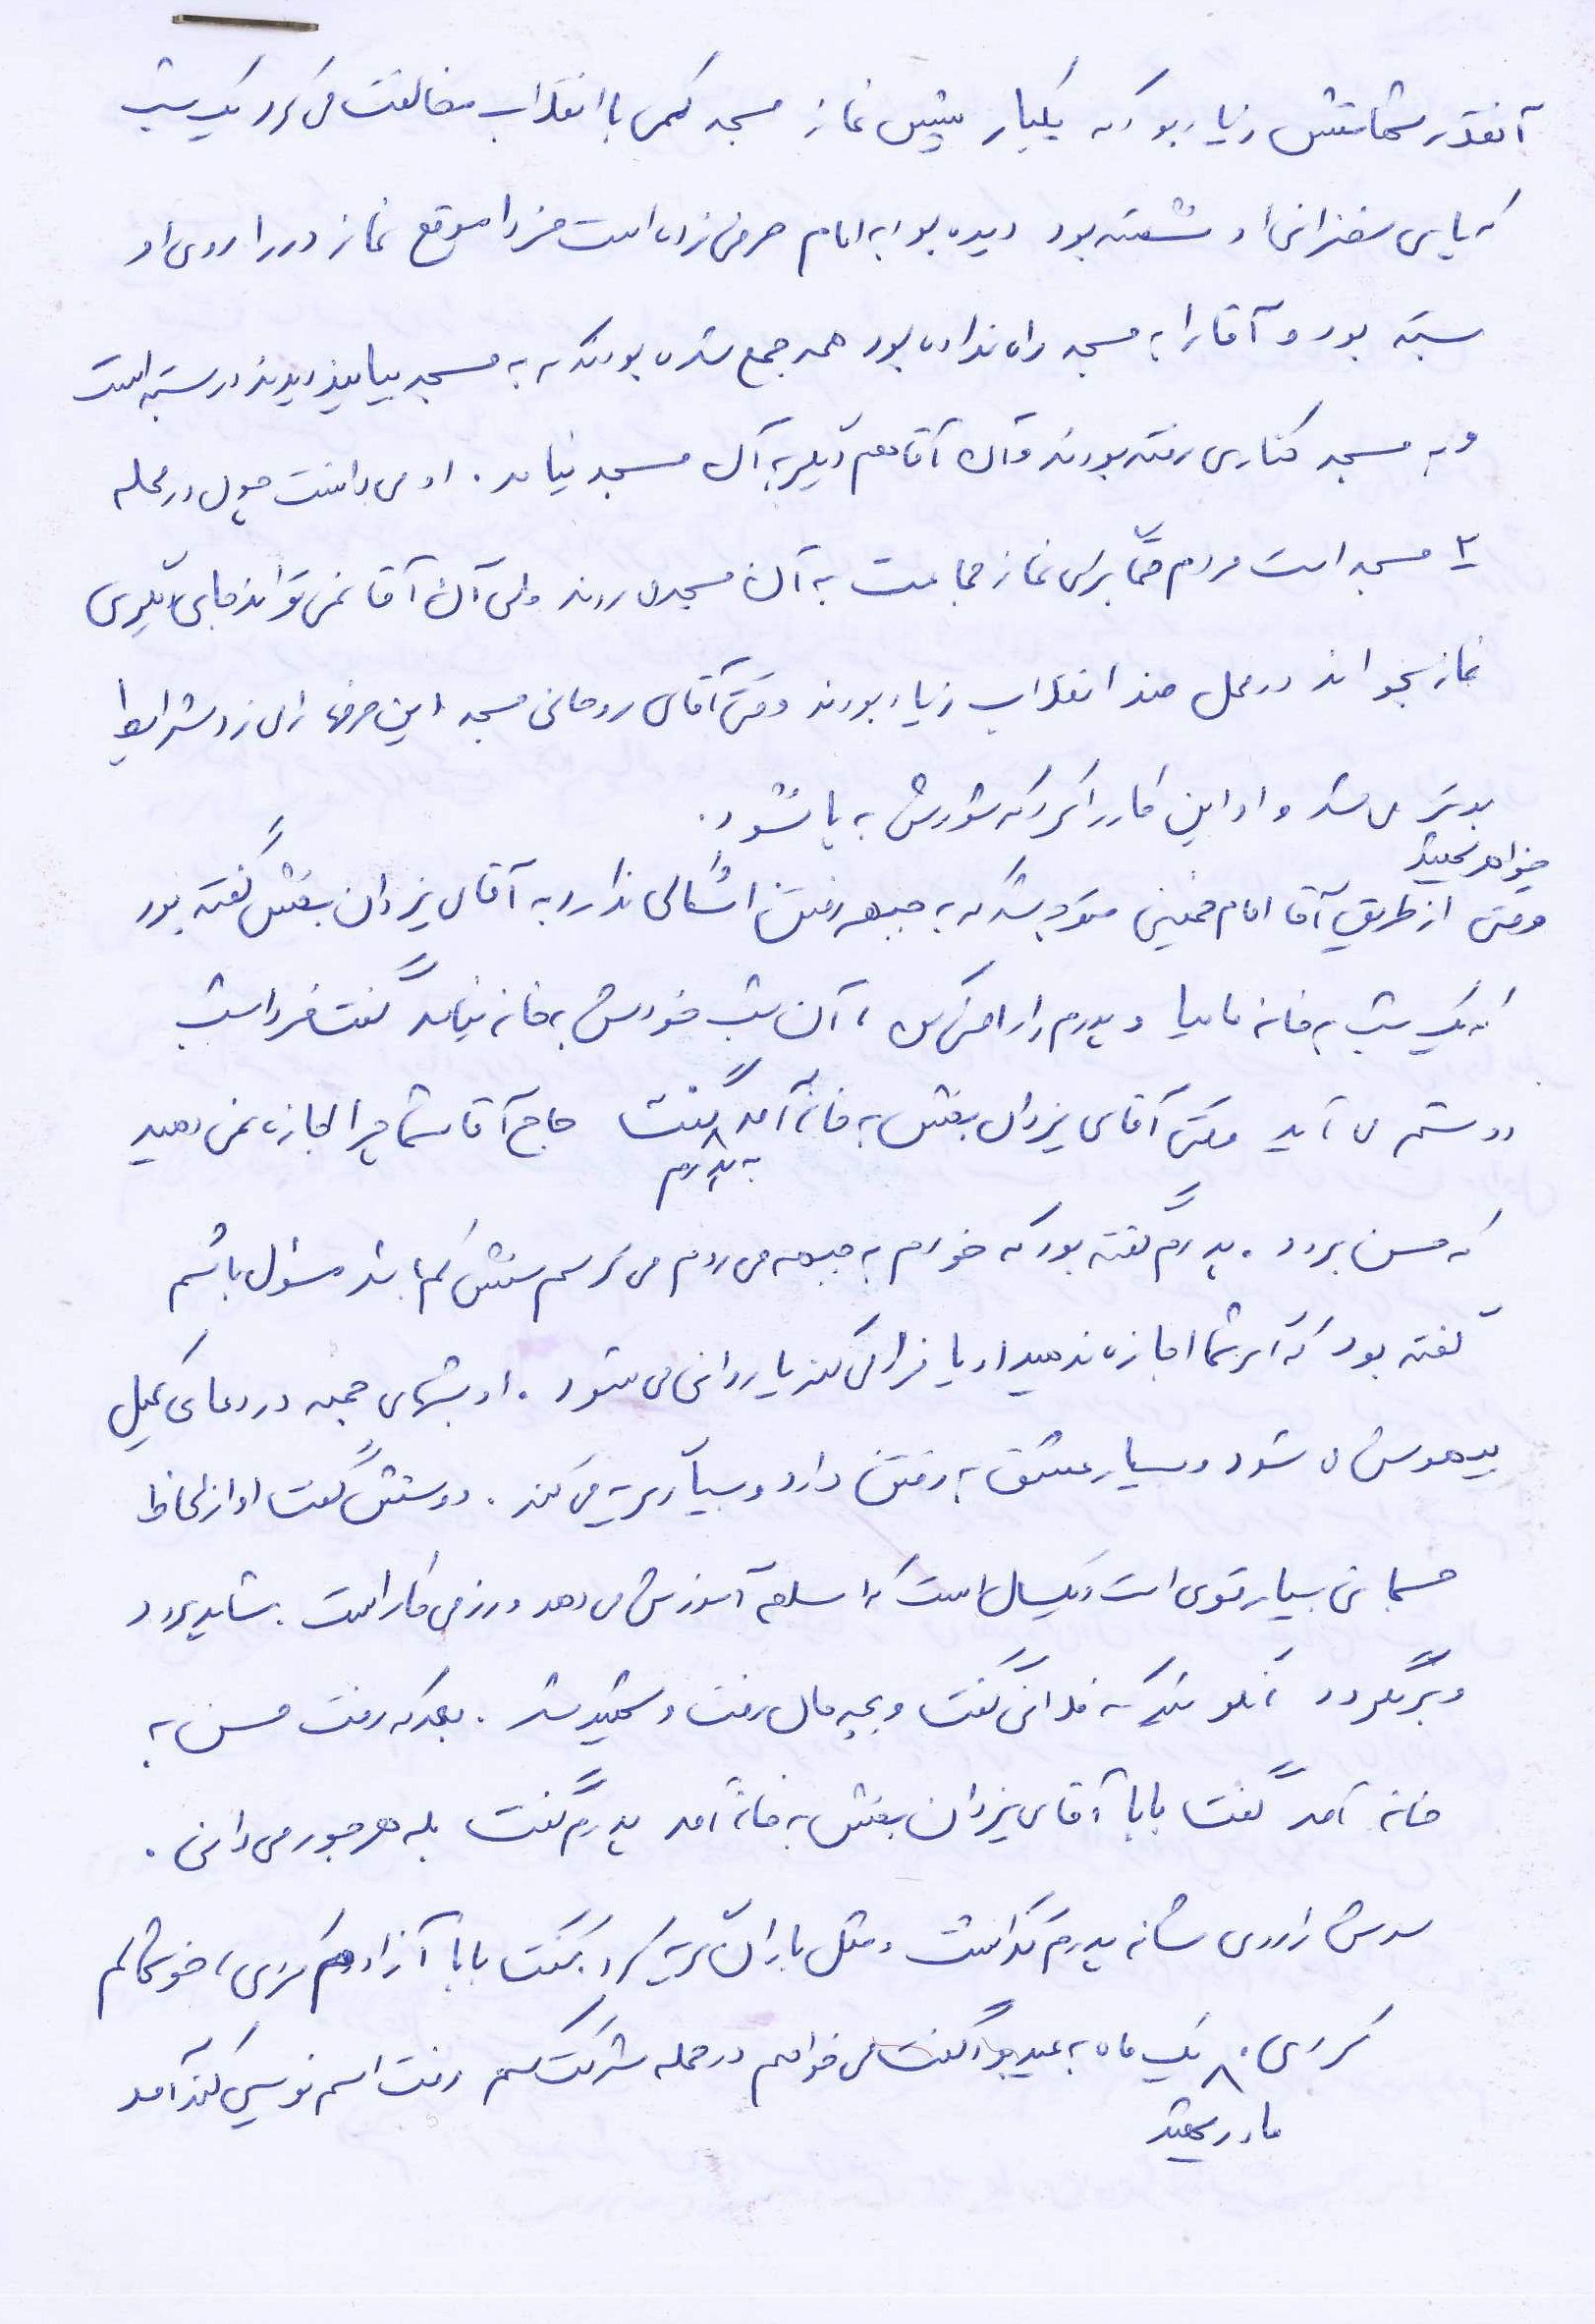 آنقدر شهامتش زیاد بود که یکبار پیش نماز مسجد کمی با انقلاب مخالفت می کرد یک شب
که پای سخنرانی او نشسته بود دیده بود به امام حرفی زده است فردا موقع نماز در را روی او
بسته بود و آقا را به مسجد راه نداده بود همه جمع شده بودند که به مسجد بیایند دیدند در بسته است
و به مسجد کناری رفته بودند و آن آقا هم دیگر به آن مسجد نیامد . او می دانست چون در محله
۲ مسجد است مردم حتماً برای نماز جماعت به آن مسجد می روند ولی آن آقا نمی تواند جای دیگری
نماز بخواند در محل ضد انقلاب زیاد بودند وقتی آقای روحانی مسجد این حرفها را می زد شرایط
بدتر می شد و او این کار را کرد که شورش به پا نشود .
خواهر شهید
وقتی از طریق آقا امام خمینی متوجه شد که به جبهه رفتن اشکالی ندارد به آقای یزدان بخش گفته بود
که یک شب به خانه ما بیا و پدرم را راضی کن ، آن شب خودش به خانه نیامد گفت فردا شب
دوستم می آید وقتی آقای یزدان بخش به خانه آمد گفت حاج آقا شما چرا اجازه نمی دهید
به پدرم
که حسن برود . پدرم گفته بود که خودم به جبهه می روم می ترسم سنش کم باشد مسئول باشم
گفته بود که اگر شما اجازه ندهید او یا فرار می کند یا روانی می شود . او شبهای جمعه در دعای کمیل
بیهوش می شود و بسیار عشق به رفتن دارد و بسیار گریه می کند . دوستش گفت او از لحاظ
جسمانی بسیار قوی است و یکسال است که اسلحه آموزش می دهد و رزمی کار است . شاید برود
و برگردد آنطور که فلانی گفت و بچه مال رفت و شهید شد . بعد که رفت حسن به
خانه آمد گفت بابا آقای یزدان بخش به خانه آمد پدرم گفت بله هر جور می دانی .
سرش را روی شانه پدرم گذاشت و مثل باران گریه کرد گفت بابا آزادم کردی ، خوشحالم
کردی . یک ماه به عید بود گفت می خواهم در حمله شرکت کنم رفت اسم نویسی کند آمد
مادر شهید